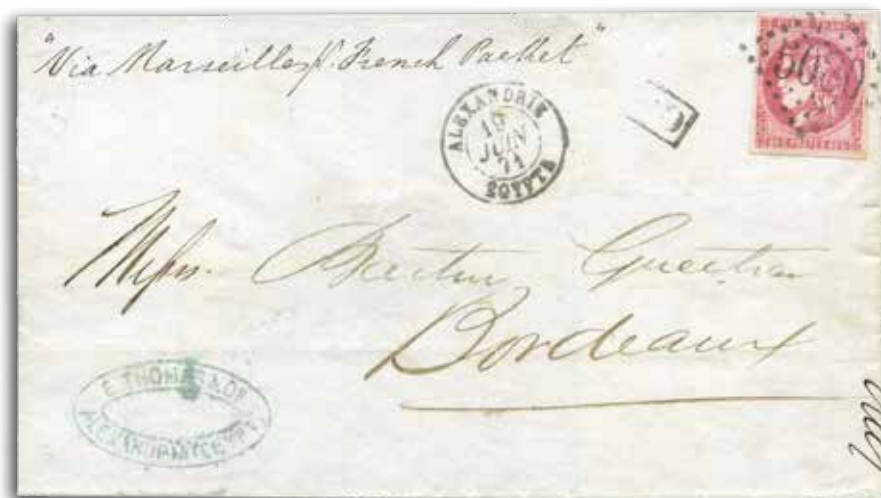 "Via Marseilles p. French Packet"
ALEXANDRIE
19
JUIN
71
EGYPTE
5080
Messrs.
Bordeaux
E. THOMAS & Co
ALEXANDRIA (EGYPT)